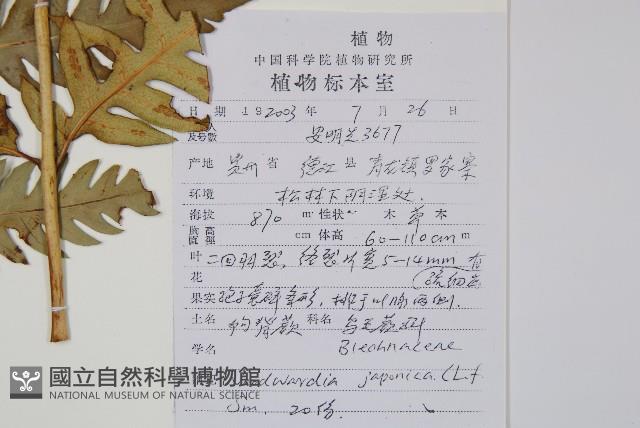 植物
中国科学院植物研究所
植物标本室
日期 19 2003 年 7 月 26 日
人及号数 安明先3677
产地 贵州 省 德江 县 青龙镇 罗家寨
环境 松林下阴湿处.
海拔 870 m 性状 木 草 本
胸高直径 cm 体高 60-110cm m
叶 二回羽裂, 终裂片宽5-14mm 有
花 疏细齿
果实 孢子囊群 形, 排于中脉两侧.
土名 狗脊蕨 科名 乌毛蕨科
学名 Blechnaceae
japonica (L.f
Sm. 20份.
國立自然科學博物館
NATIONAL MUSEUM OF NATURAL SCIENCE